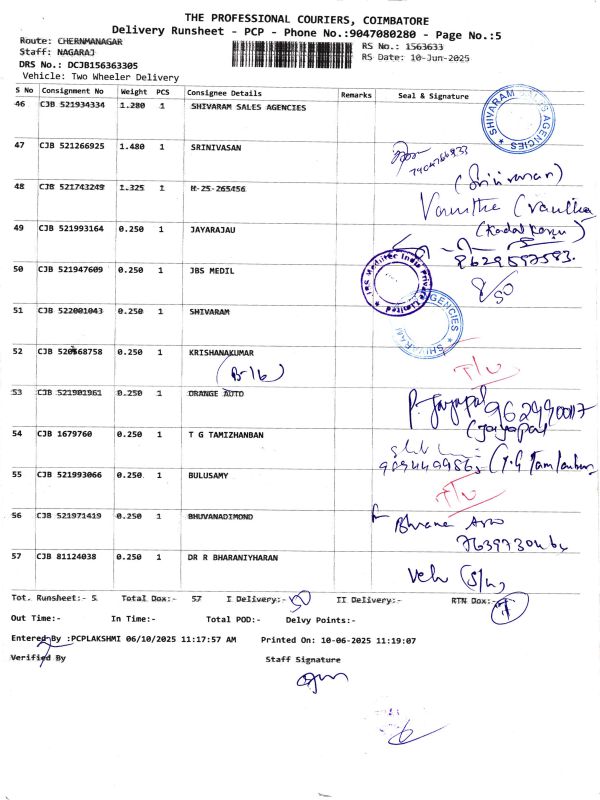 THE PROFESSIONAL COURIERS, COIMBATORE
Delivery Runsheet - PCP - Phone No.:9047080280 - Page No.:5
Route: CHERNMANAGAR
Staff: NAGARAJ
RS No.: 1563633
RS Date: 10-Jun-2025
DRS No.: DCJB156363305
Vehicle: Two Wheeler Delivery
S No Consignment No Weight PCS Consignee Details Remarks Seal & Signature
46 CJB 521934334 1.280 1 SHIVARAM SALES AGENCIES
SHIVARAM SALES AGENCIES
47 CJB 521266925 1.480 1 SRINIVASAN
(Srinivasan)
48 CJB 521743249 1.325 1 H-25-265456
49 CJB 521993164 0.250 1 JAYARAJAU
8629597583.
50 CJB 521947609 0.250 1 JBS MEDIL
JBS Meditec India Private Limited
8/50
51 CJB 522001043 0.250 1 SHIVARAM
SHIVARAM AGENCIES
52 CJB 68758 0.250 1 KRISHANAKUMAR
(B-16)
53 CJB 521901961 0.250 1 ORANGE AUTO
P. Jayapal
(Jayapal
54 CJB 1679760 0.250 1 T G TAMIZHANBAN
55 CJB 521993066 0.250 1 BULUSAMY
56 CJB 521971419 0.250 1 BHUVANADIMOND
57 CJB 81124038 0.250 1 DR R BHARANIYHARAN
Tot. Runsheet:- 5 Total Dox:- 57 I Delivery:- 50 II Delivery:- RTN Dox:- 7
Out Time:- In Time:- Total POD:- Delvy Points:-
Entered By :PCPLAKSHMI 06/10/2025 11:17:57 AM Printed On: 10-06-2025 11:19:07
Verified By Staff Signature